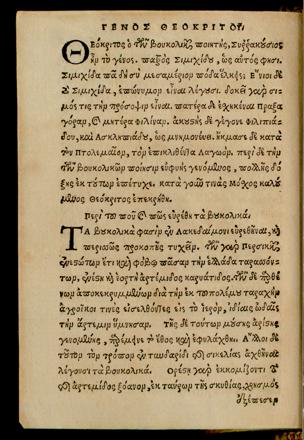 ΓΕΝΟΣ ΘΕΟΚΡΙΤΟΥ.
Θεόκριτος ὁ τῶν βουκολικῶν ποιητής, Συρρακούσιος
ἦν τὸ γένος. πατρὸς Σιμιχίδου, ὡς αὐτός φησι.
Σιμιχίδα πᾶ δὴ τὺ μεσαμέριον πόδα ἕλκεις; Ἔνιοι δὲ
τὸ Σιμιχίδα, ἐπώνυμον εἶναι λέγουσι. δοκεῖ γὰρ σι-
μός τις τὴν πρόσοψιν εἶναι. πατέρα δὲ ἐσχηκέναι Πραξα
γόραν, καὶ μητέρα φιλίναν. ἀκουστὴς δὲ γέγονε φιλιππί-
δου, καὶ Ἀσκληπιάδου, ὡς μνημονεύει. ἤκμασε δὲ κατὰ
τὸν Πτολεμαῖον, τὸν ἐπικληθέντα Λαγωόν. περὶ δὲ τὴν
τῶν βουκολικῶν ποίησιν εὐφυὴς γενόμενος, πολλῆς δό
ξης ἐπέτυχε. κατὰ γοῦν τινὰς Μόσχος καλού
μενος Θεόκριτος ἐπεκρήθη.
Περὶ τοῦ ποῦ καὶ πῶς εὑρέθη τὰ βουκολικά.
Τὰ βουκολικά φασιν ἐν Λακεδαίμονι εὑρεθῆναι, καὶ
περισσῶς προκοπῆς τυχεῖν. τῶν γὰρ Περσικῶν
ἐνεστώτων ἔτι καὶ φόβῳ πᾶσαν τὴν ἑλλάδα ταρασσόν-
των, ἐνέστη καὶ ἑορτὴ ἀρτέμιδος καρυάτιδος. τῶν δὲ παρθέ
νων ἀποκεκρυμμένων διὰ τὴν ἐκ τοῦ πολέμου ταραχὴν
ἀγροῖκοί τινες εἰσελθόντες εἰς τὸ ἱερὸν, ἰδίαις ᾠδαῖς
τὴν ἄρτεμιν ὕμνησαν. τῆς δὲ τούτων μούσης ἀρίστης
γενομένης, παρέμεινε τὸ ἔθος καὶ ἐφυλάχθη. Ἄλλοι δὲ
τοῦτον τὸν τρόπον ἐν τῇ σικελίας
λέγουσι τὰ βουκολικά. Ὀρέστῃ γὰρ ἐκκομίζοντι τὸ
τῆς ἀρτέμιδος ξόανον, ἐκ ταύρων τῆς σκυθίας, χρησμὸς
ἐξέπεσεν